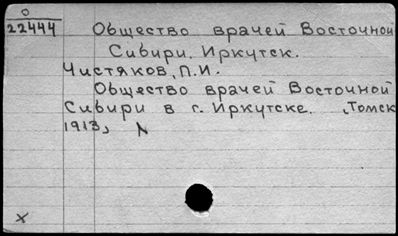 0
22444 Общество врачей Восточной
Сибири. Иркутск.
Чистяков, П.И.
Общество врачей Восточной
Сибири в г. Иркутске. Томск
1913,
x